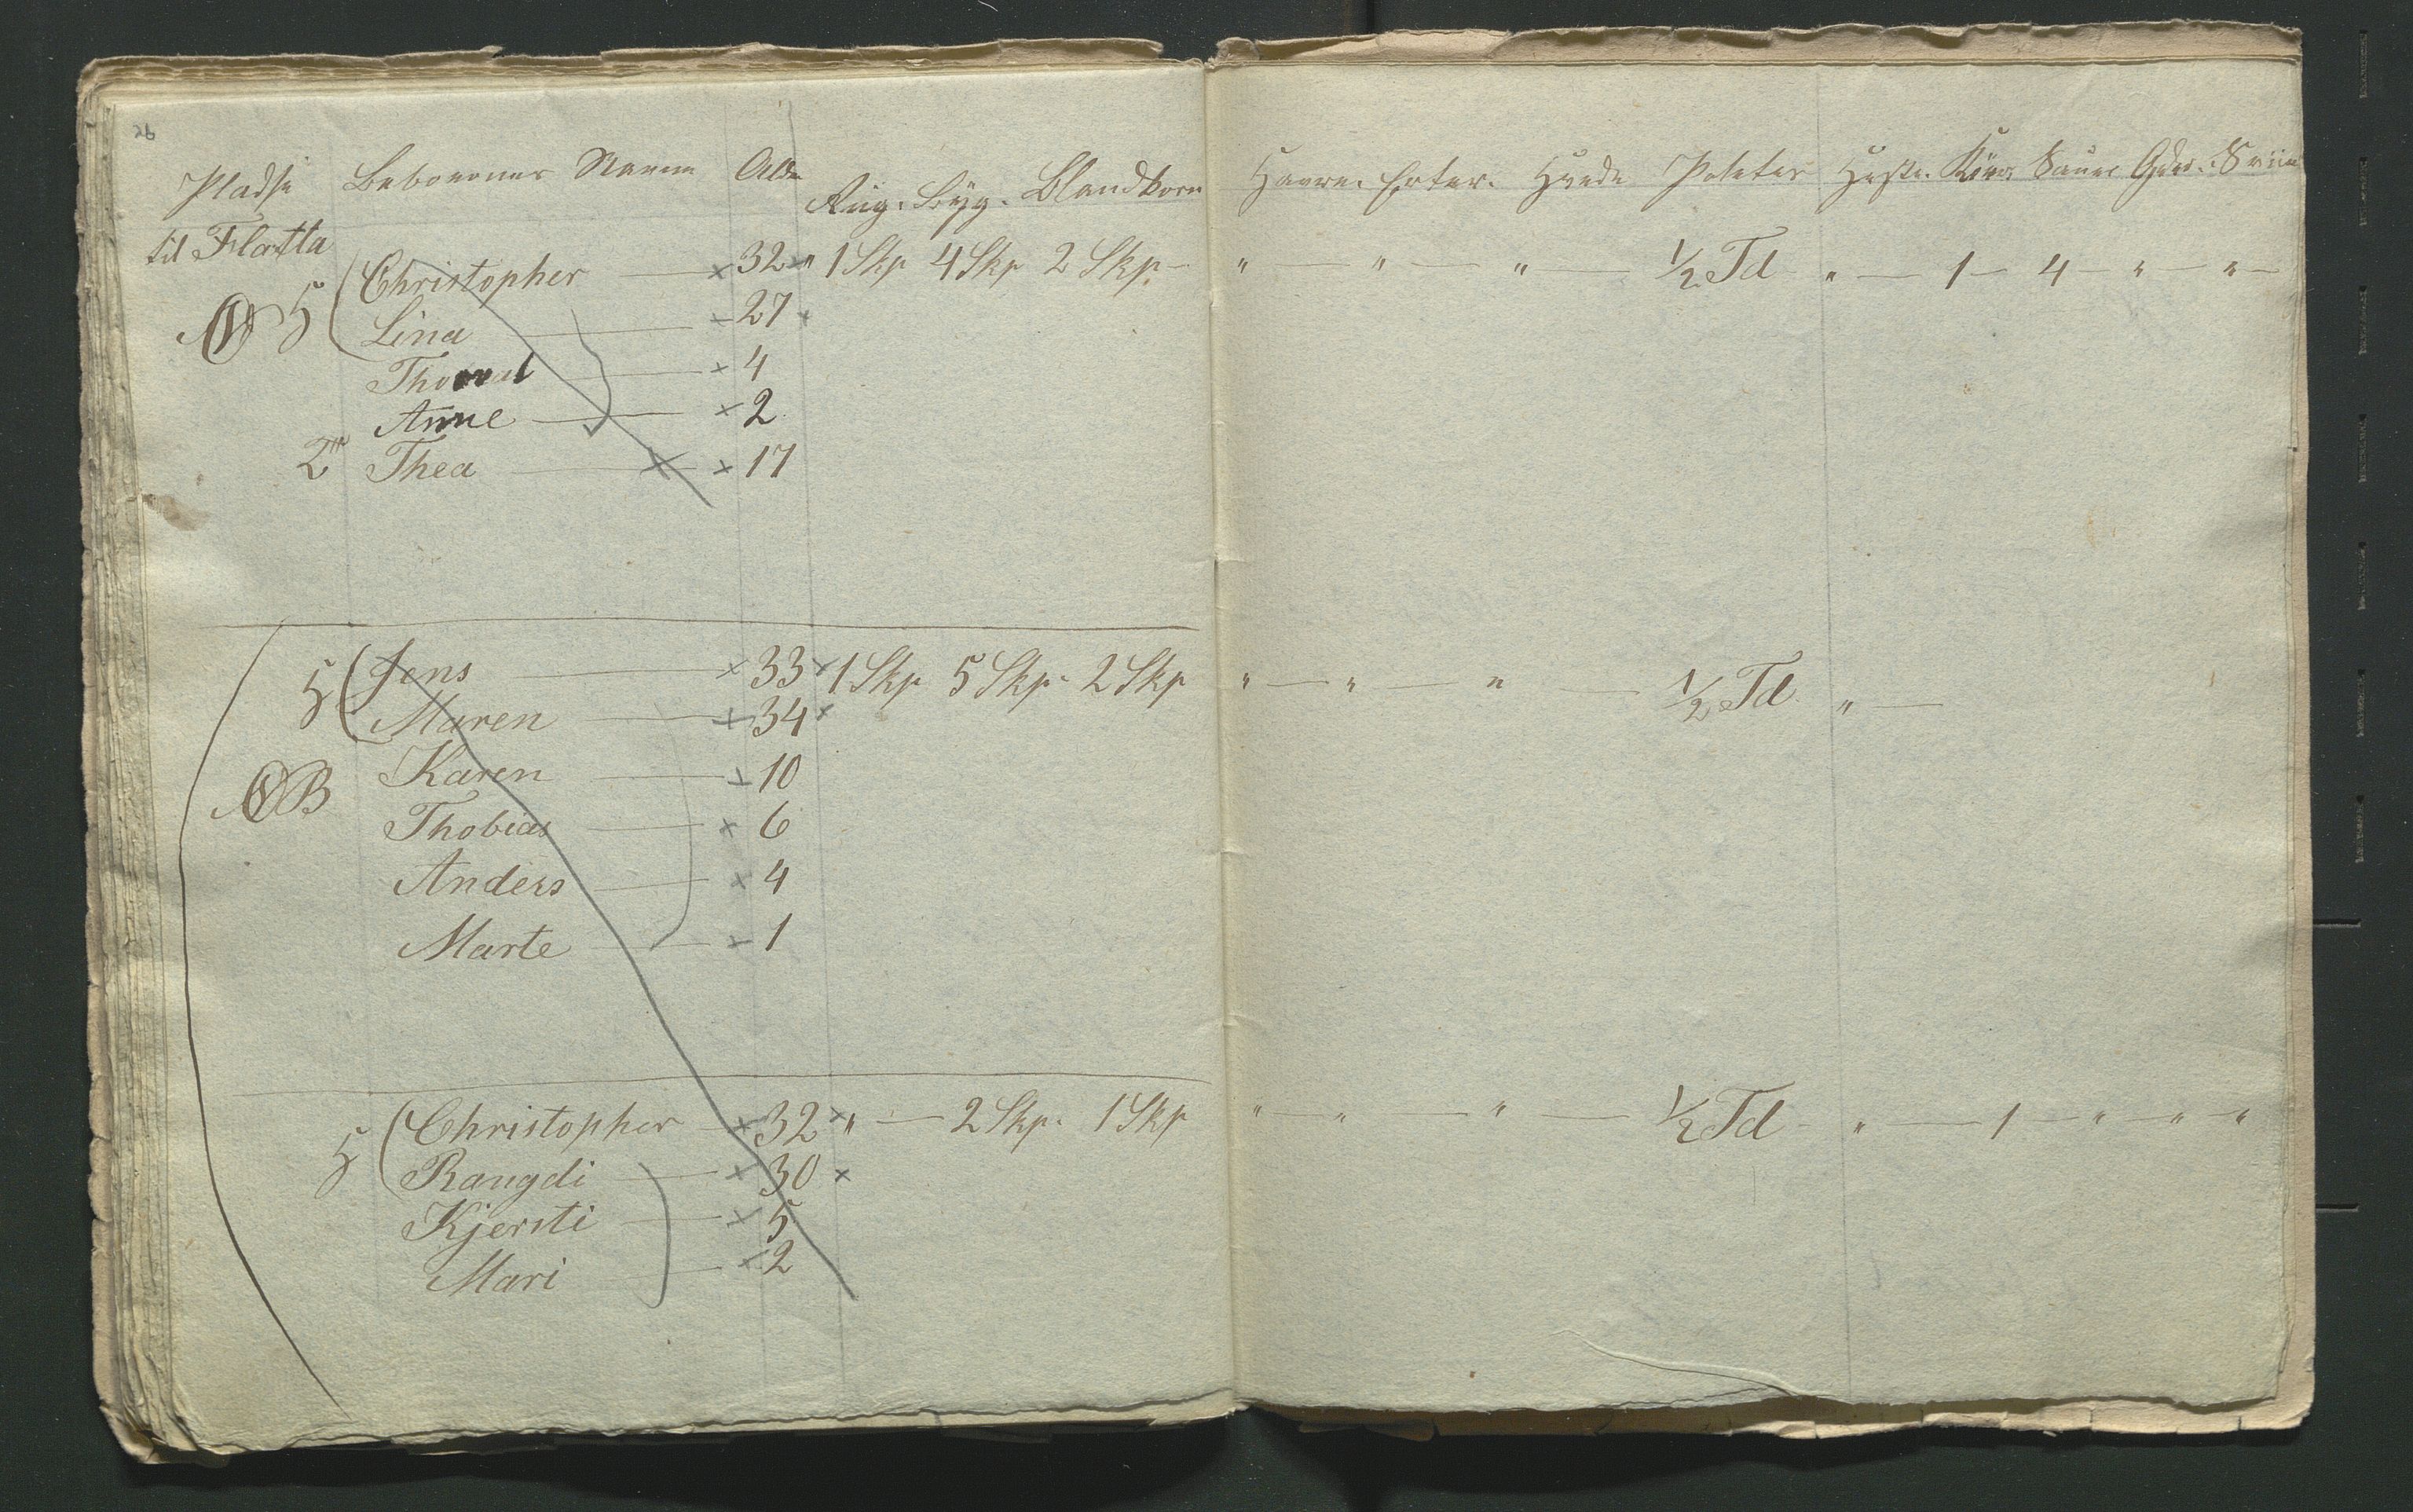 26
Pladse Beboernes Navne Alder Rüg. Byg. Blandkorn Havre. Erter. Hvede Poteter Heste. Kiör Sauer Geder. Sviin
til Flatta
Christopher — x 32 x " 1 Skp 4 Skp 2 Skp — " — " — " — 1/2 Td " — 1 — 4 — " — " —
5 Lina — x 27 x
Thorval — x 4
Anne — x 2
2 Thea — x x 17
5 Jens — x 33 x 1 Skp 5 Skp. 2 Skp " — " — " — 1/2 Td. " —
Maren — x 34 x
Karen — x 10
Thobias — x 6
Anders — x 4
Marte — x 1
5 Christopher — x 32 x " — 2 Skp. 1 Skp " — " — " — 1/2 Td — " — 1 — " — " — "
Rangdi — x 30 x
Kjersti — x 5
Mari — x 2